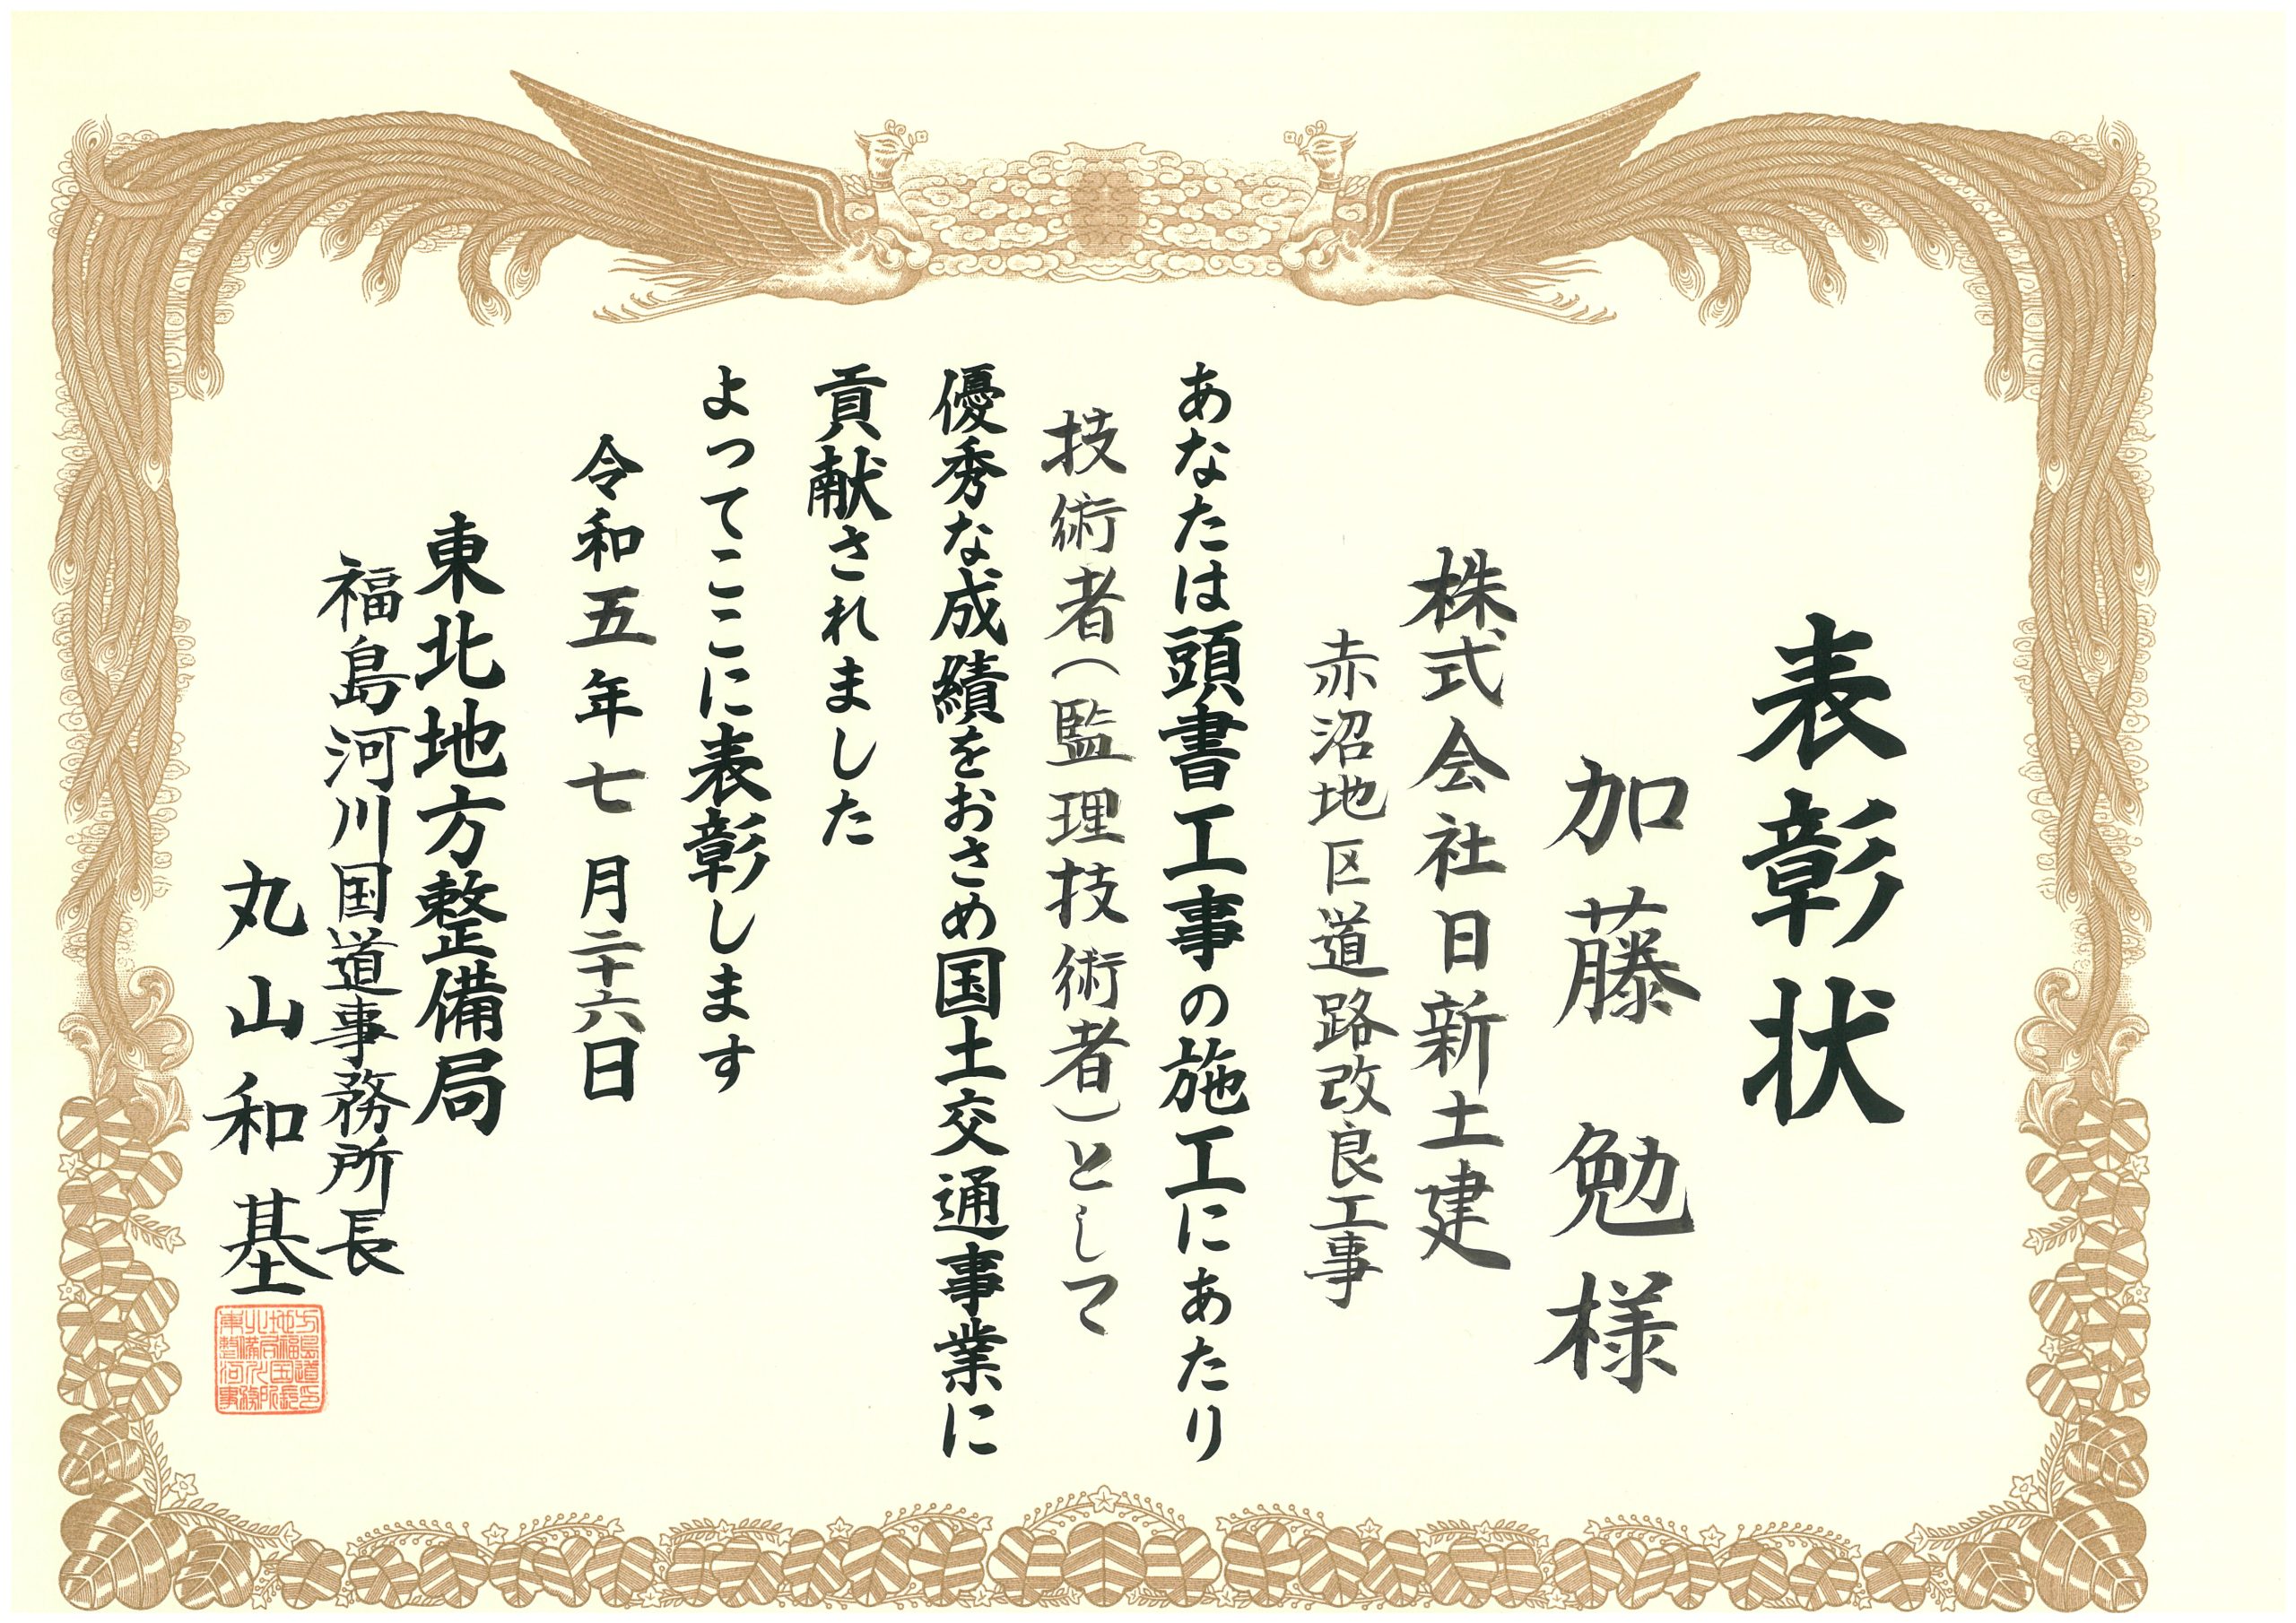 表彰状
加藤 勉 様
株式会社日新土建
赤沼地区道路改良工事
あなたは頭書工事の施工にあたり
技術者(監理技術者)として
優秀な成績をおさめ国土交通事業に
貢献されました
よってここに表彰します
令和五年七月二十六日
東北地方整備局
福島河川国道事務所長
丸山和基